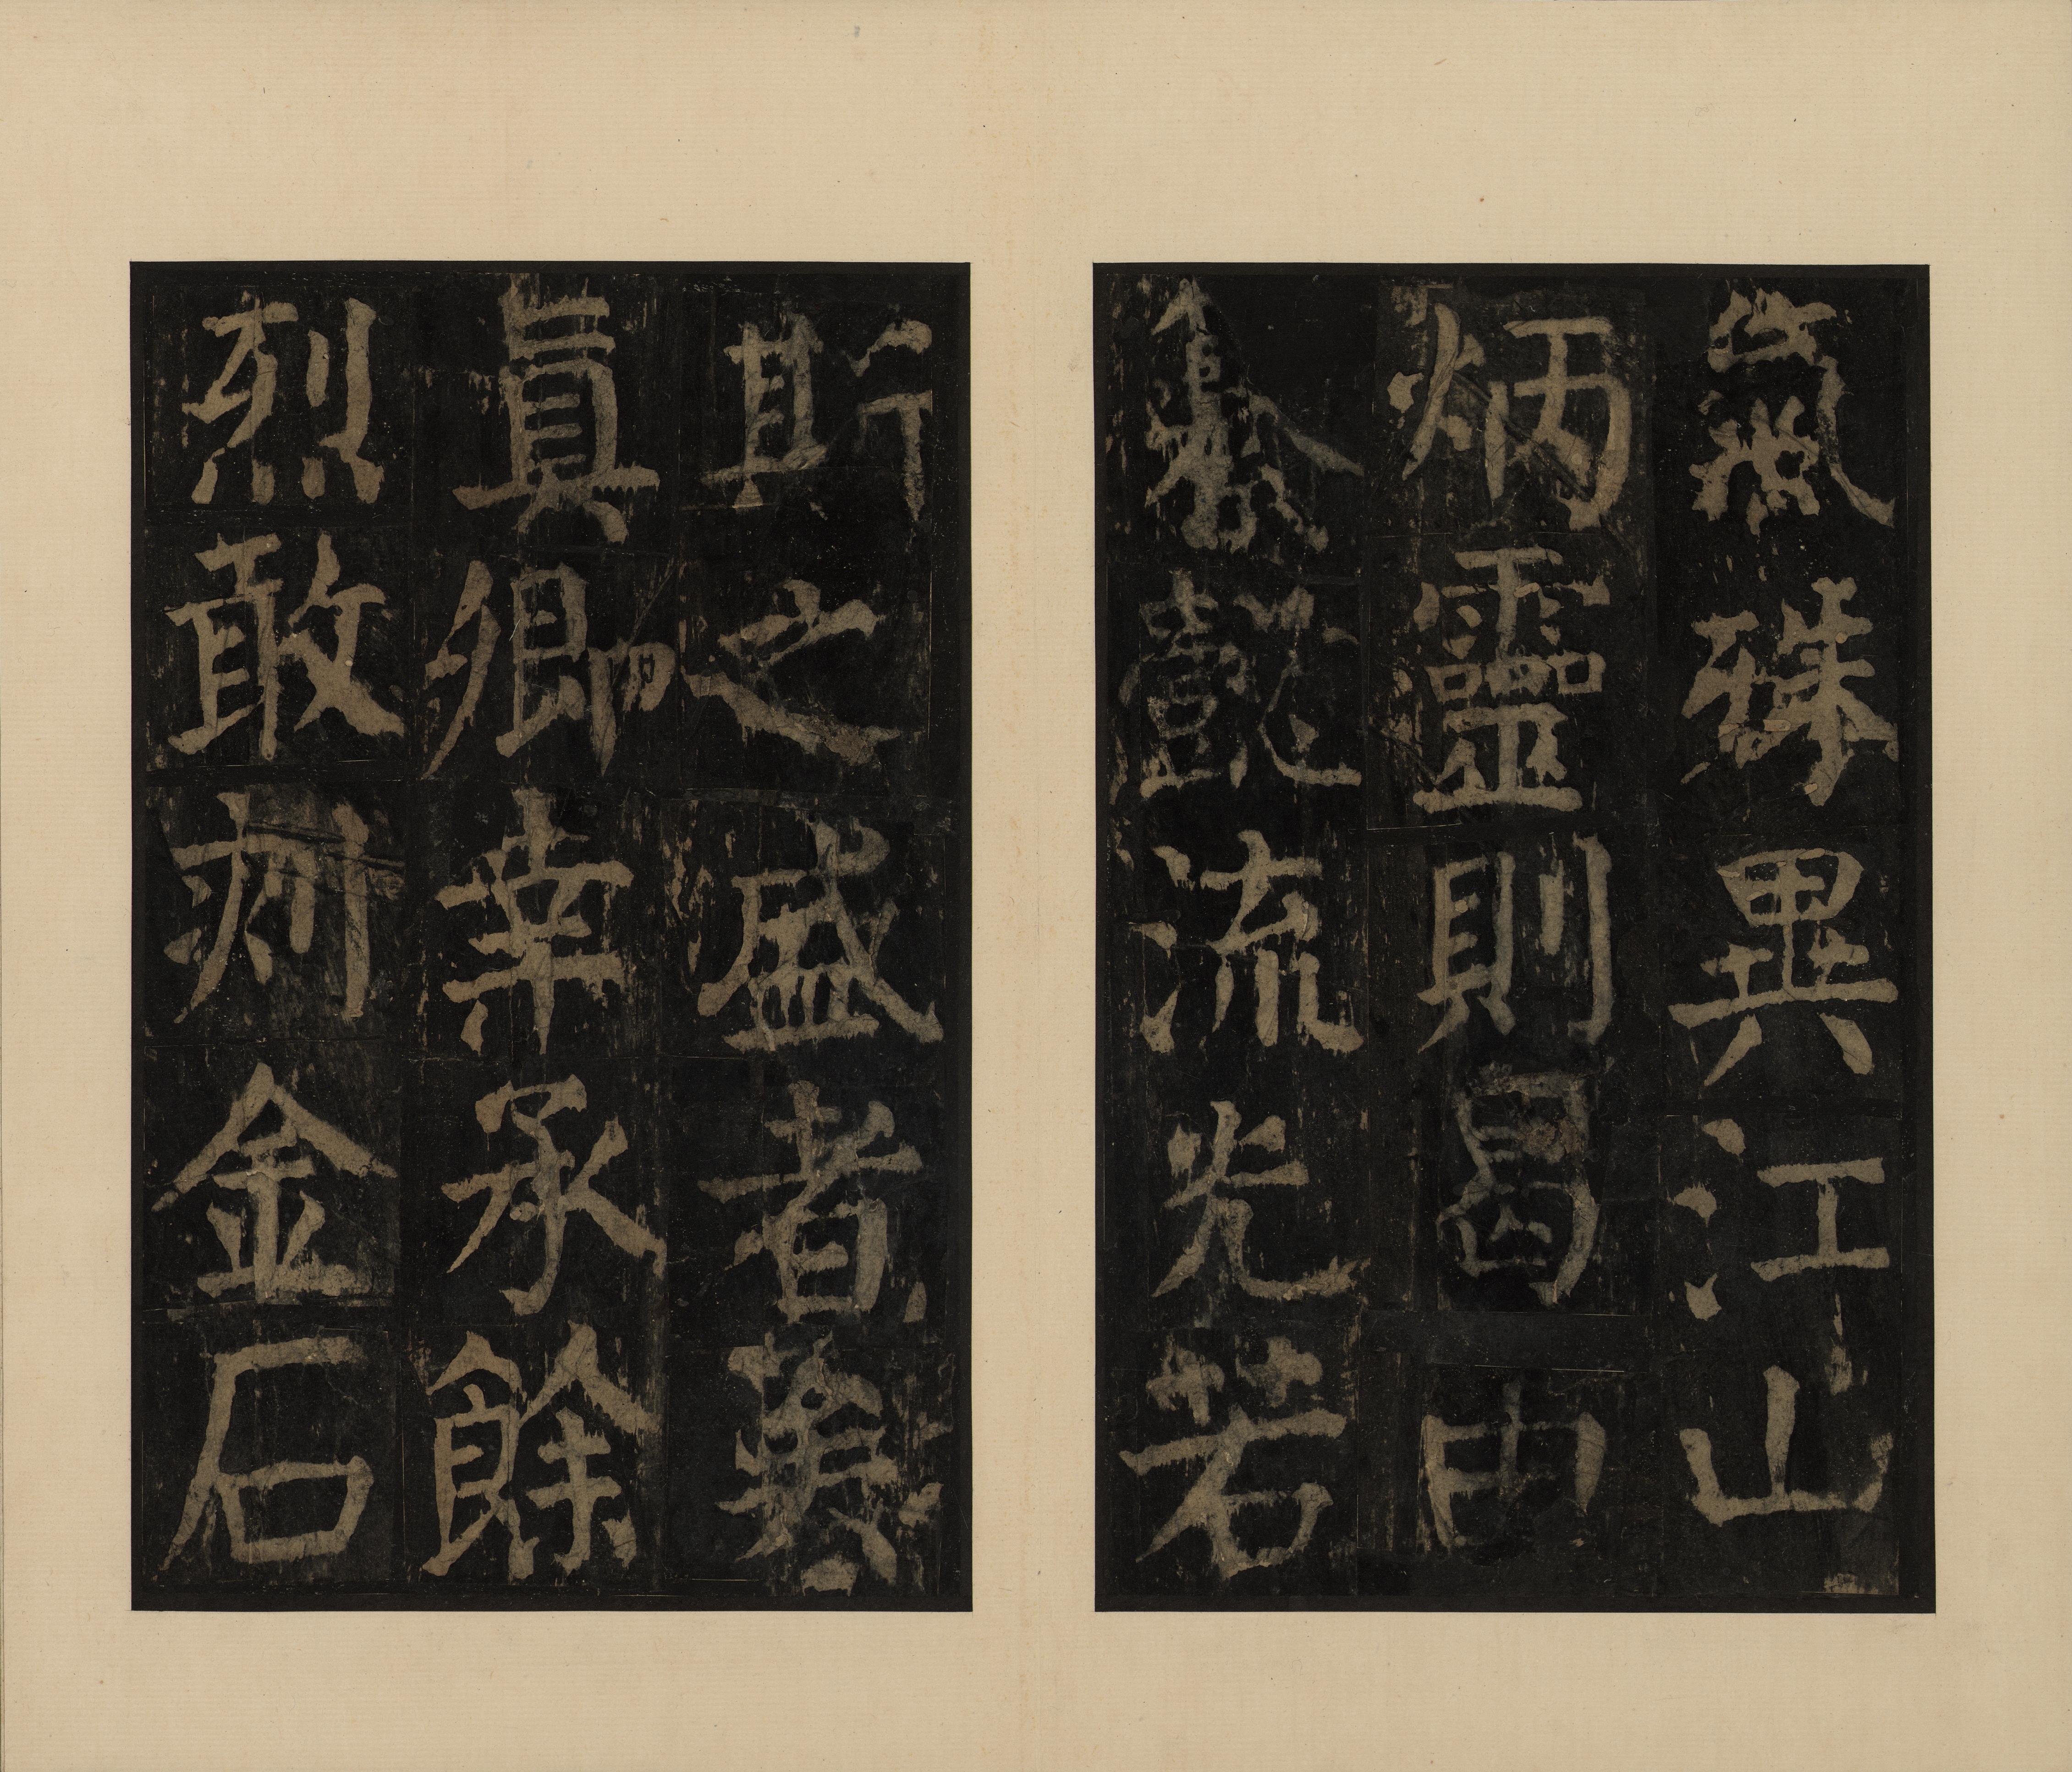 氣殊異江山
炳靈則曷由
纂懿流光若
斯之盛者矣
眞卿幸承餘
烈敢刊金石